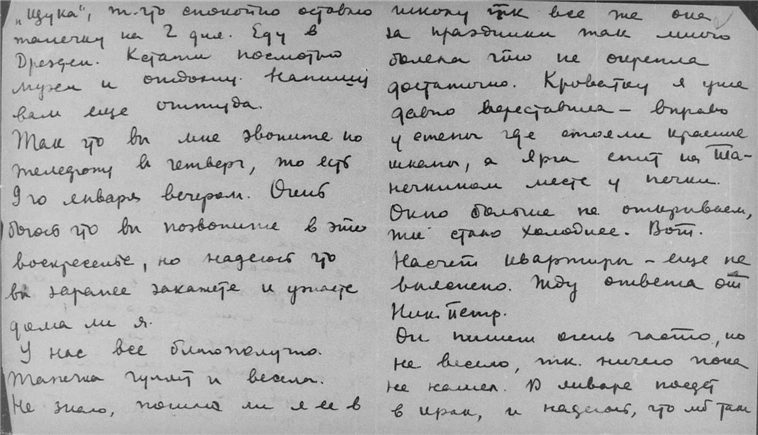 "Щука", т.что спокойно оставлю
Танечку на 2 дня. Еду в
Дрезден. Кстати посмотрю
музеи и отдохну. Напишу
вам еще оттуда.
Так что вы мне звоните по
телефону в четверг, то есть
9го января вечером. Очень
боюсь что вы позвоните в это
воскресенье, но надеюсь что
вы заранее закажете и узнаете
дома ли я.
У нас все благополучно.
Танечка гуляет и весела.
Не знаю, пошлю ли я ее в
школу тк все же она
за праздники так много
болела что не окрепла
достаточно. Кроватку я уже
давно переставила – вправо
у стены где стояли красные
шкапы, а Ярга спит на Та-
нечкином месте у печки.
Окно больше не открываем,
тк стало холоднее. Вот.
Насчет квартиры – еще не
выяснено. Жду ответа от
Ник. Петр.
Он пишет очень часто, но
не весело, тк. ничего пока
не нашел. В январе поедет
в Ирак, и надеюсь, что мб там